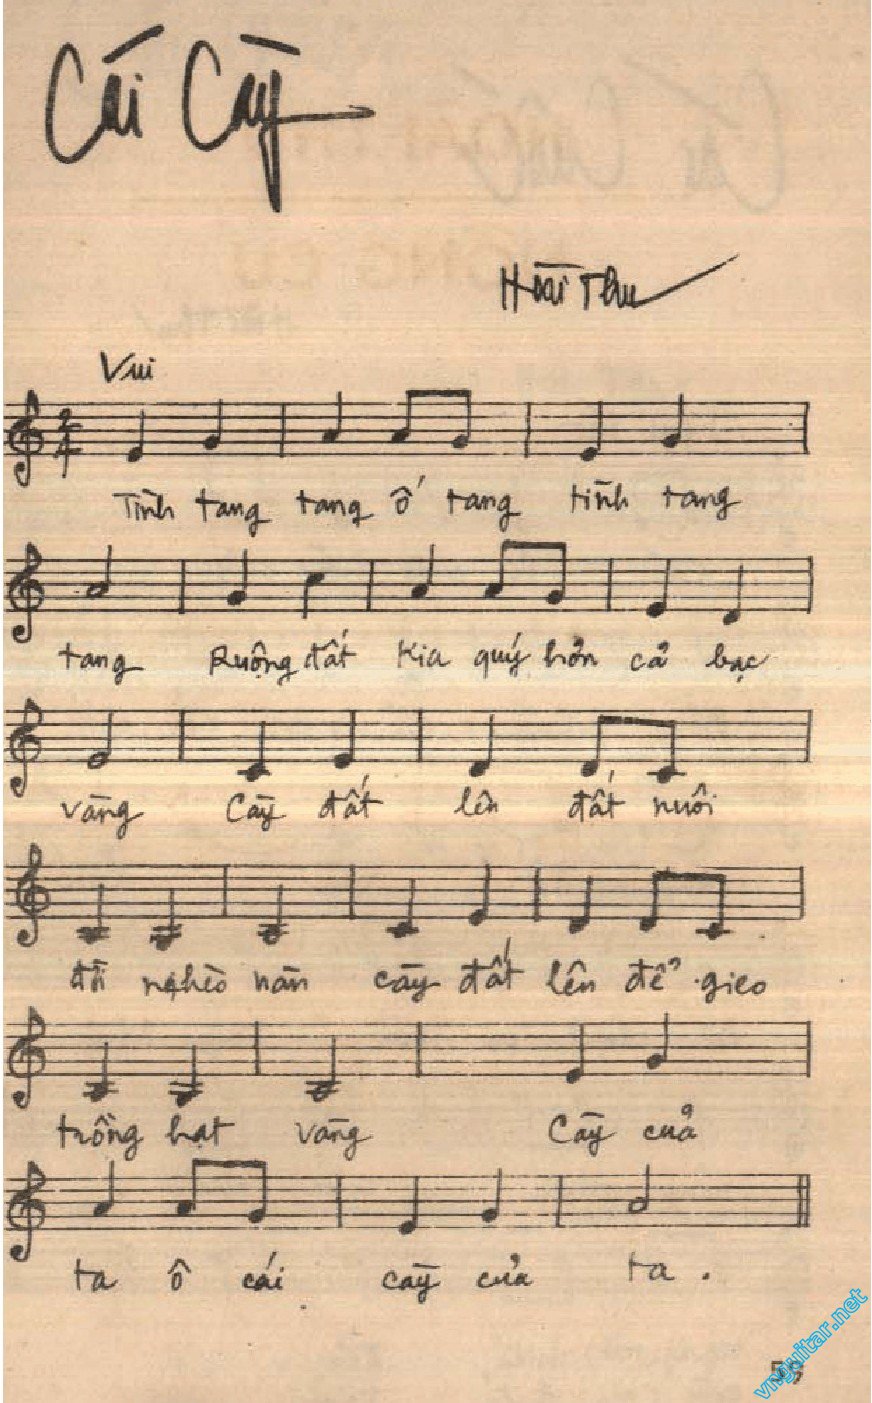 Cái Cày
Hoài Thu
Vui
2
4
Tình tang tang ố tang tình tang
tang Ruộng đất kia quý hơn cả bạc
vàng Cày đất lên đất nuôi
đời nghèo nàn cày đất lên để gieo
trồng hạt vàng Cày của
ta ô cái cày của ta.
vnguitar.net